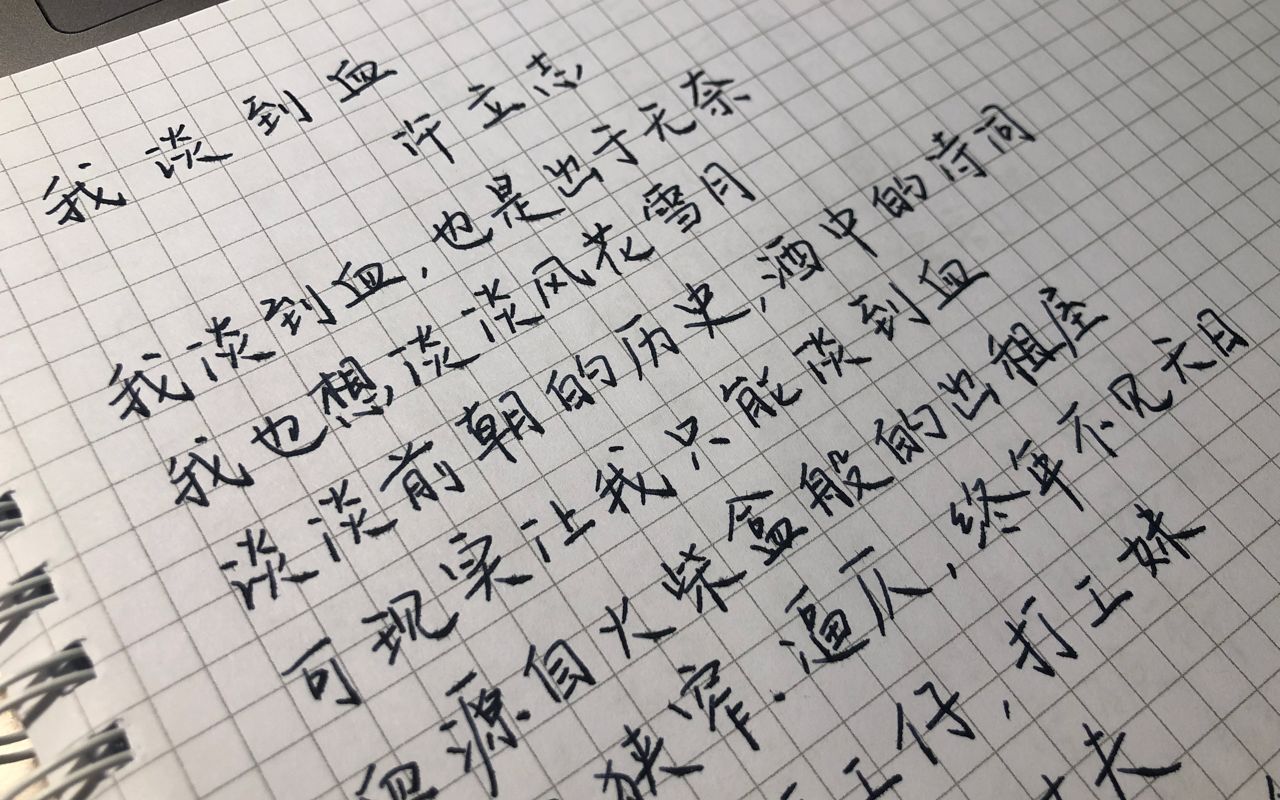 我谈到血
许立志
我谈到血,也是出于无奈
我也想谈谈风花雪月
谈谈前朝的历史,酒中的诗词
可现实让我只能谈到血
血源自火柴盒般的出租屋
狭窄.逼仄,终年不见天日
工仔,打工妹
夫